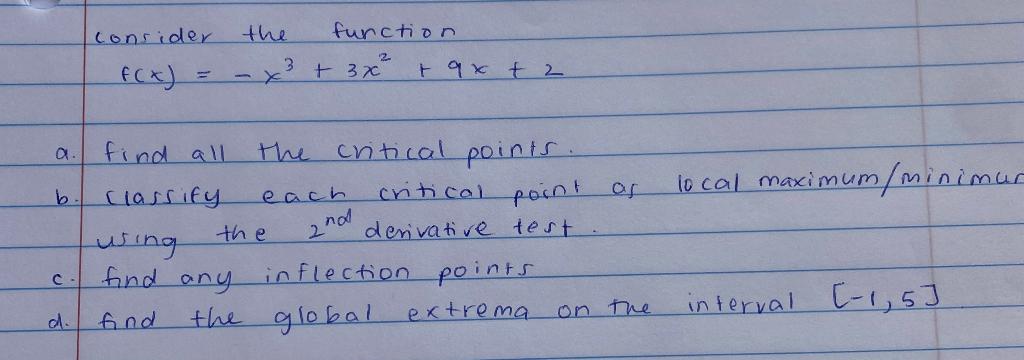 consider the function
f(x) = - x³ + 3x² + 9x + 2
a. find all the critical points.
b. classify each critical point as local maximum/minimum
using the 2nd derivative test.
c. find any inflection points
d. find the global extrema on the interval [-1, 5]